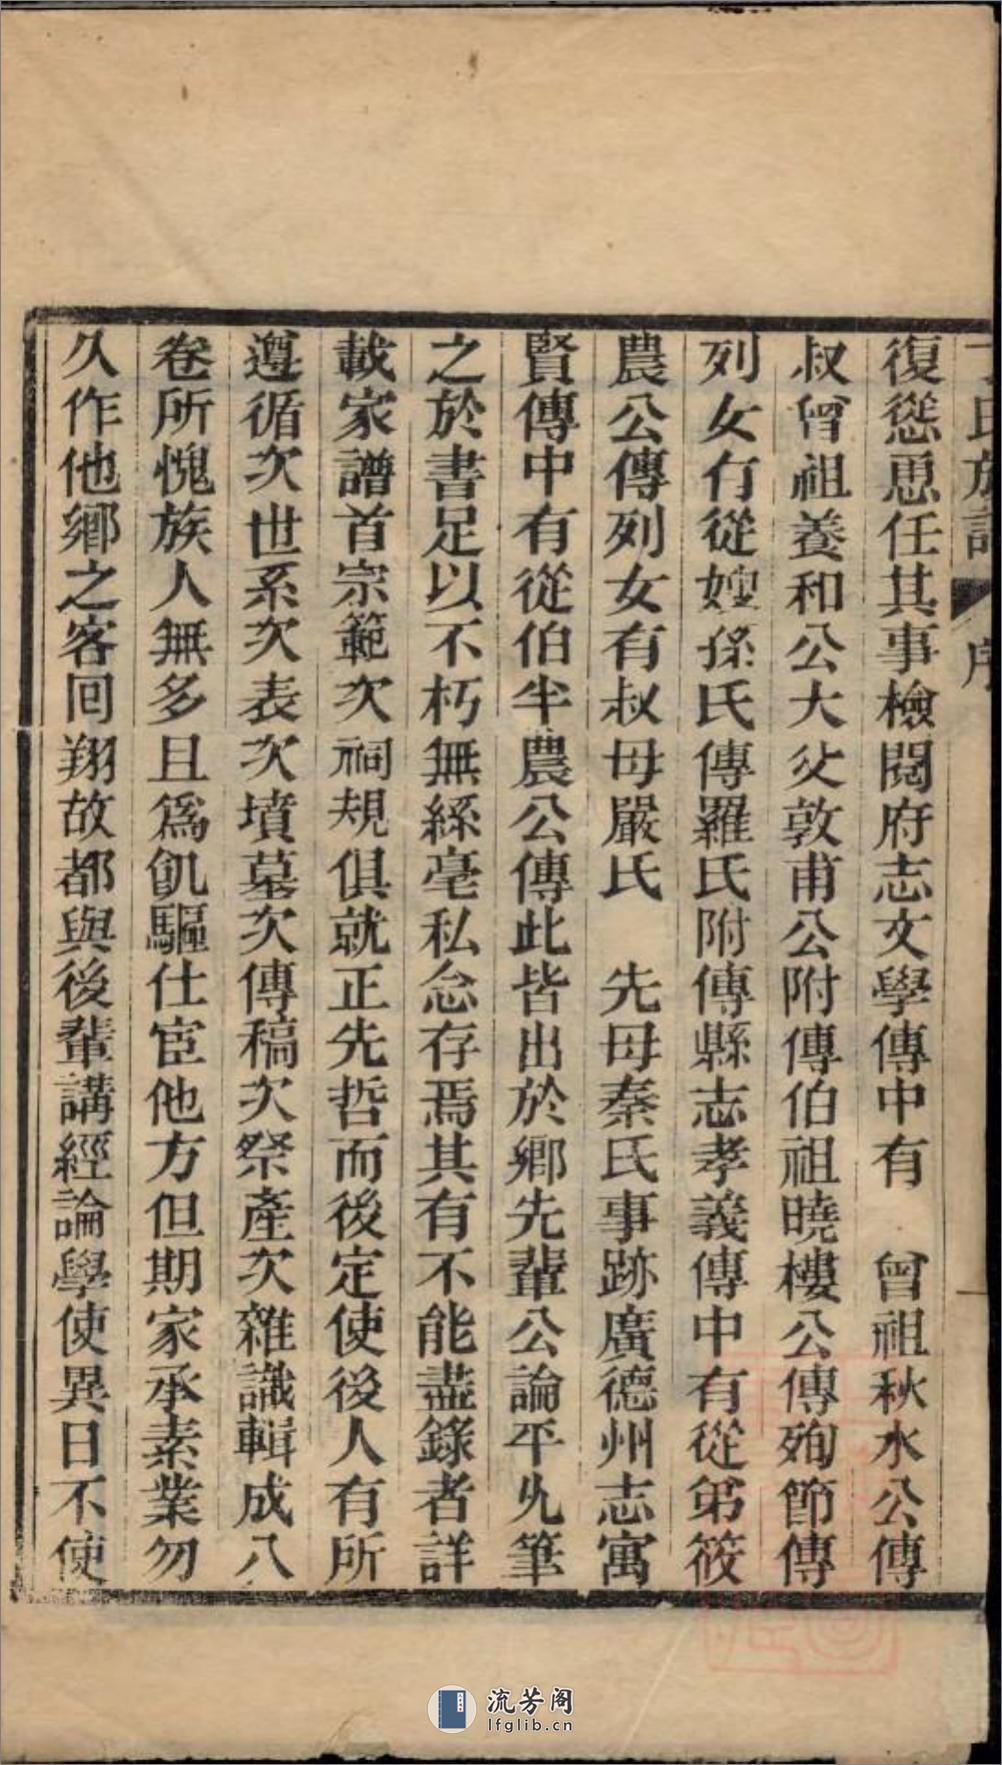 復慫恿任其事檢閱府志文學傳中有　曾祖秋水公傳
叔曾祖養和公大父敦甫公附傳伯祖曉樓公傳殉節傳
列女有從嫂孫氏傳羅氏附傳縣志孝義傳中有從弟筱
農公傳列女有叔母嚴氏　先母秦氏事跡廣德州志寓
賢傳中有從伯半農公傳此皆出於鄉先輩公論平允筆
之於書足以不朽無絲毫私念存焉其有不能盡錄者詳
載家譜首宗範次祠規俱就正先哲而後定使後人有所
遵循次世系次表次墳墓次傳稿次祭產次雜識輯成八
卷所愧族人無多且爲飢驅仕宦他方但期家承素業勿
久作他鄉之客回翔故都與後輩講經論學使異日不使
流芳阁
lfglib.cn